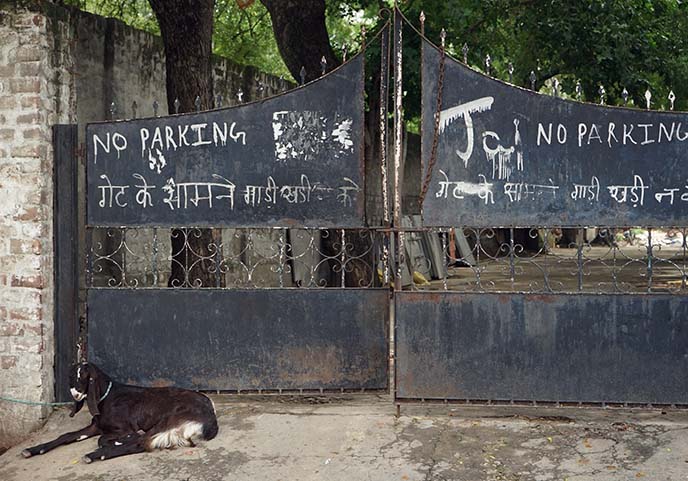 NO PARKING
गेट के सामने गाडी खडी को
NO PARKING
गेट के सामने गाडी खडी न